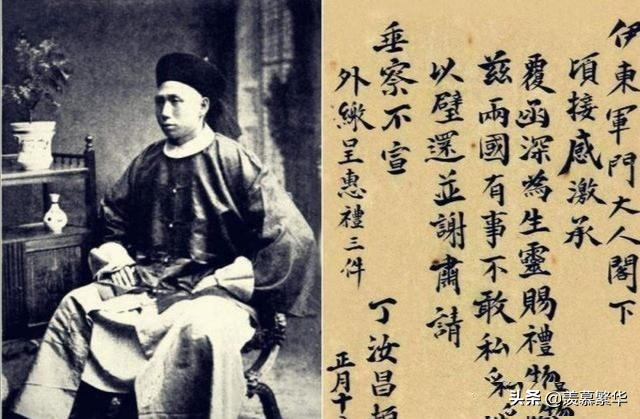 伊東軍門大人閣下
頃接感激承
覆函深為生靈賜禮物
茲兩國有事不敢私
以璧還並謝肅請
垂察不宣
外繳呈惠禮三件
丁汝昌
正月十
头条 @羡慕繁华